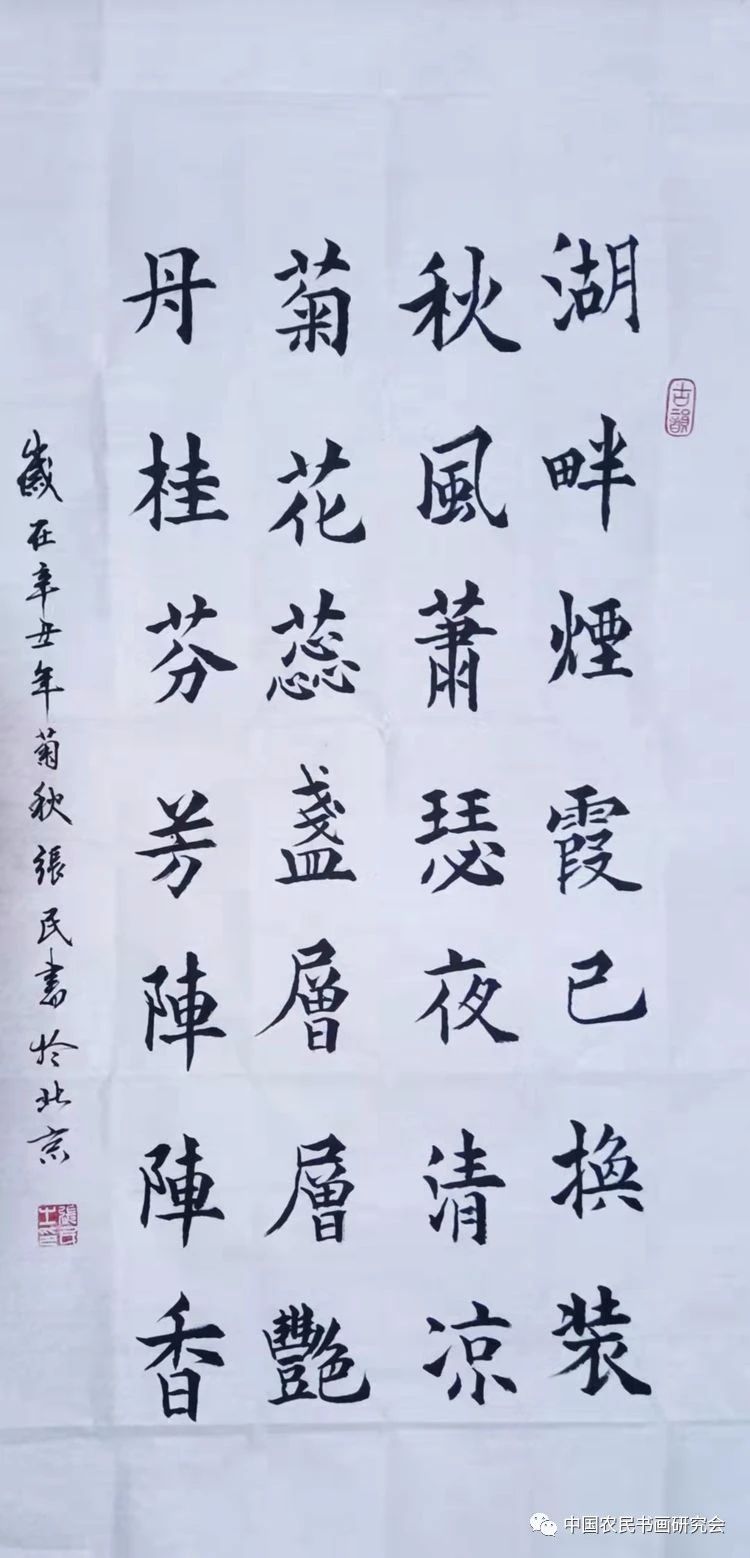 古韻
湖畔煙霞已換装
秋風蕭瑟夜清凉
菊花蕊盞層層艷
丹桂芬芳陣陣香
歲在辛丑年菊秋張民書於北京
中国农民书画研究会